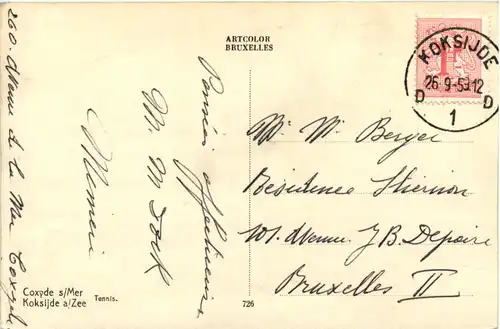 260. Avenue de la Mer Coxyde
ARTCOLOR
BRUXELLES
Pensées affectueuses
M. M
Mr Mme Berger
Résidence
101. Avenue J B. Depaire
Bruxelles II
KOKSIJDE
26-9-59.12
D D
1
1F
Coxyde s/Mer
Koksijde a/Zee
Tennis.
726